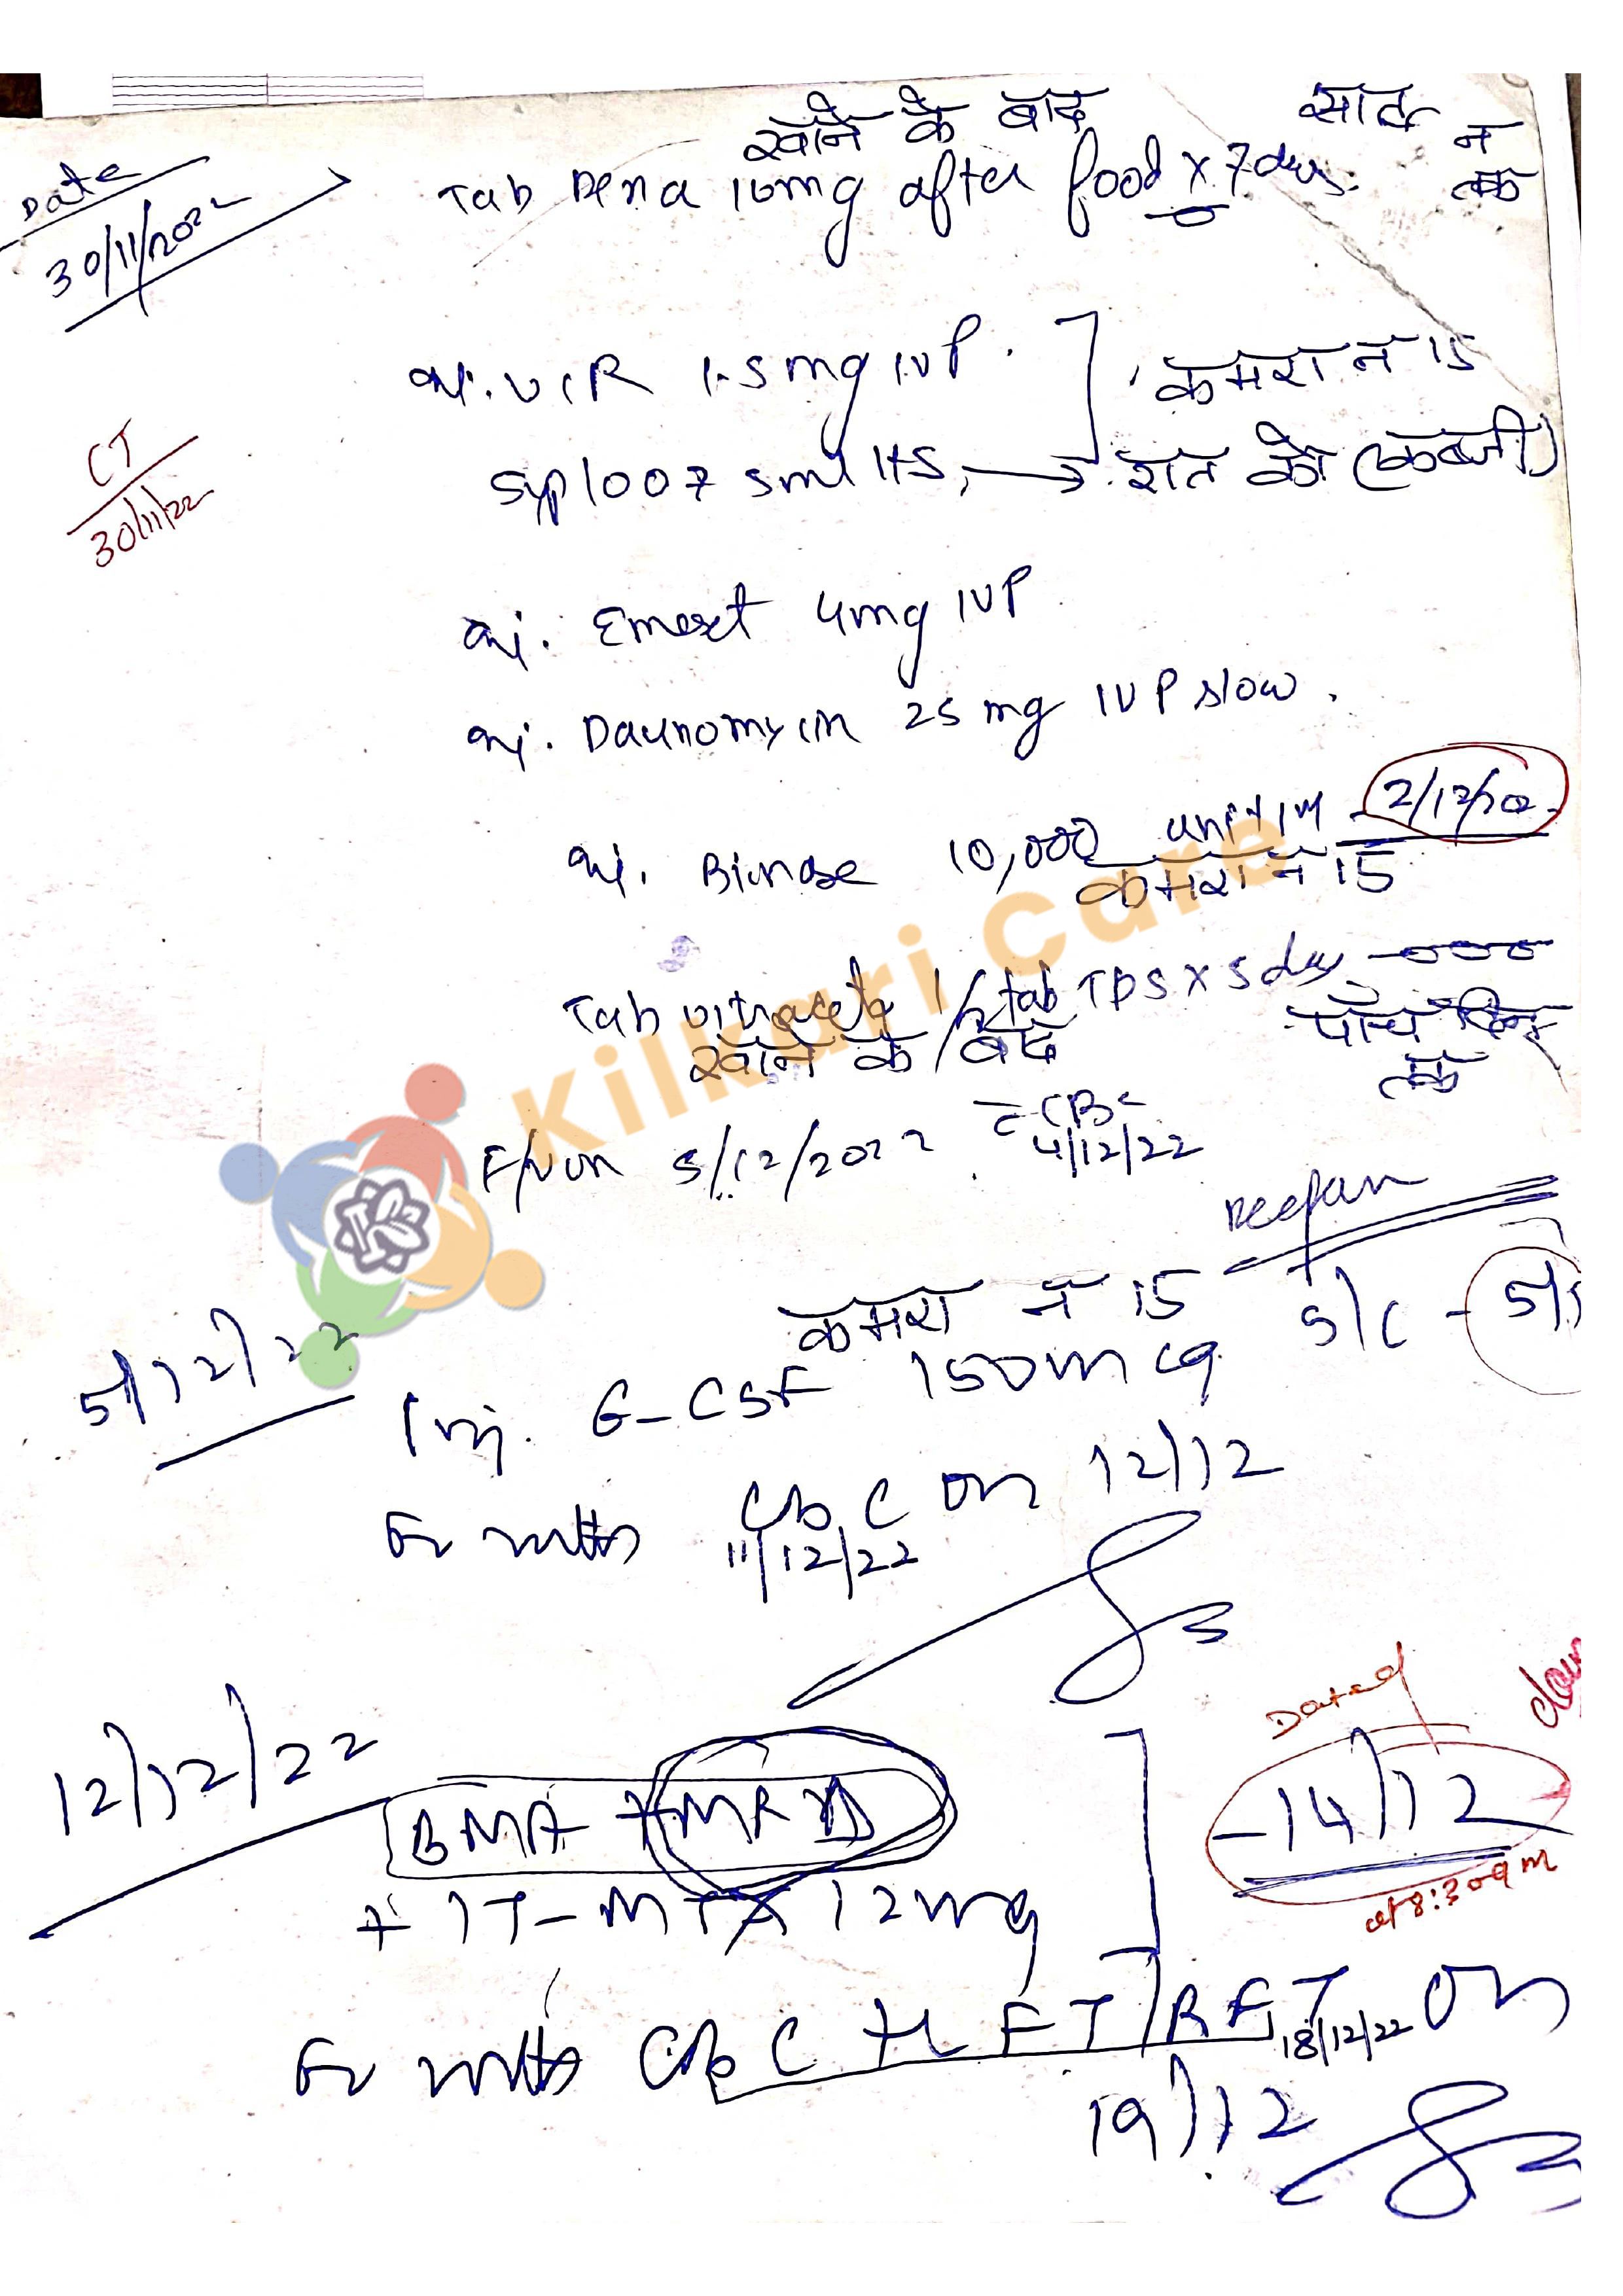 खाने के बाद सात
Date न
30/11/2022 Tab Dexa 10mg after food x 7 days. तक
inj. VCR 1.5mg IVP. कमरा न 15
CT
30/11/22
Syp 100 7 5ml HS, → रात को (कब्जी)
inj. Emeset 4mg IVP
inj. Daunomycin 25 mg IVP slow.
inj. 10,000 unit IM - 2/12/22
कमरा न 15
Tab Ultracet 1/2 tab TDS x 5 day
खाने के बाद पाँच दिन
तक
F/U on 5/12/2022 c̄ CBC
4/12/22
Kilkari Care
कमरा न 15 S/C -
5/12/22 Inj. G-CSF 150 mcg
F/U with CBC on 12/12
11/12/22
12/12/22
Dated
BMA + MRD - 14/12
+ IT-MTX 12mg at 8:30am
F/U with CBC + LFT/RFT 18/12/22 on
19/12